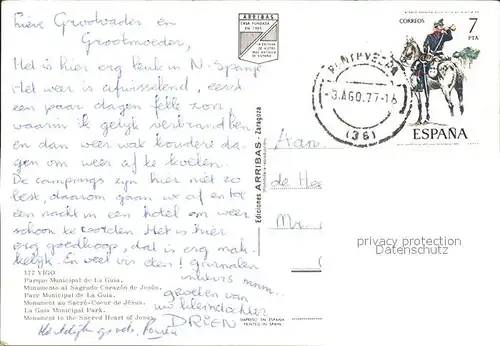 Lieve Grootvader en
Grootmoeder,
Het is hier erg leuk in N-Spanje
Het weer is afwisselend, eerst
een paar dagen felle zon,
waarin ik gelijk verbrandde,
en dan weer wat koudere da-
gen om weer af te koelen.
De campings zijn hier niet zo
best, daarom gaan we af en toe
een nacht in een hotel om weer
schoon te worden. Het is hier
erg goedkoop, dat is erg mak-
kelijk. En veel vis eten! garnalen
mm.
groeten van
uw kleindochter
DRIEN
Hartelijke groeten
ARRIBAS
CASA FUNDADA
EN 1905
CORREOS
7
PTA
ESPAÑA
PONTEVEDRA
-3.AGO.77-16
(36)
Ediciones ARRIBAS - Zaragoza
Aan.
de He
Mr.
privacy protection
Datenschutz
177 VIGO
Parque Municipal de La Guía.
Monumento al Sagrado Corazón de Jesús.
Parc Municipal de La Guia.
Monument au Sacré-Coeur de Jésus.
La Guia Municipal Park.
Monument to the Sacred Heart of Jesus.
IMPRESO EN ESPAÑA
PRINTED IN SPAIN